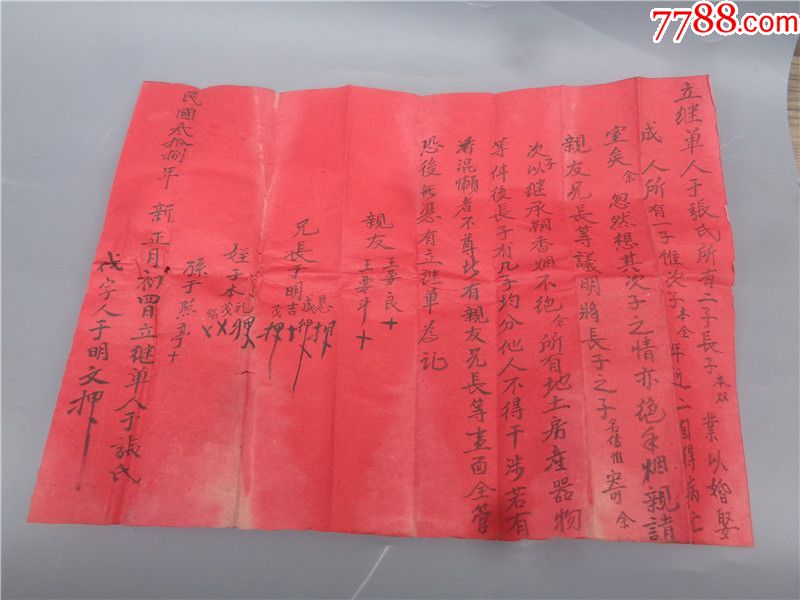 7788.com
立继单人于張氏所有二子長子本双業以婚娶
成人所有一子惟次子本全年近二旬得病亡
室矣余忽然想其次子之情亦絶香烟親請
親友兄長等議明將長子之子名傳惟 余
次子以继承嗣香烟不絶余所有地土房産器物
等件後長子有几子均分他人不得干涉若有
混懶者不尊此有親友兄長等查面全管
恐後無憑有立继单為记
親友王 良十
王 斗十
兄長于明
恩押
成押
吉十
茂押
姪于本
礼押
茂
孫于 亭十
民國叁拾捌年新正月初四日立继单人于張氏
代字人于明文押